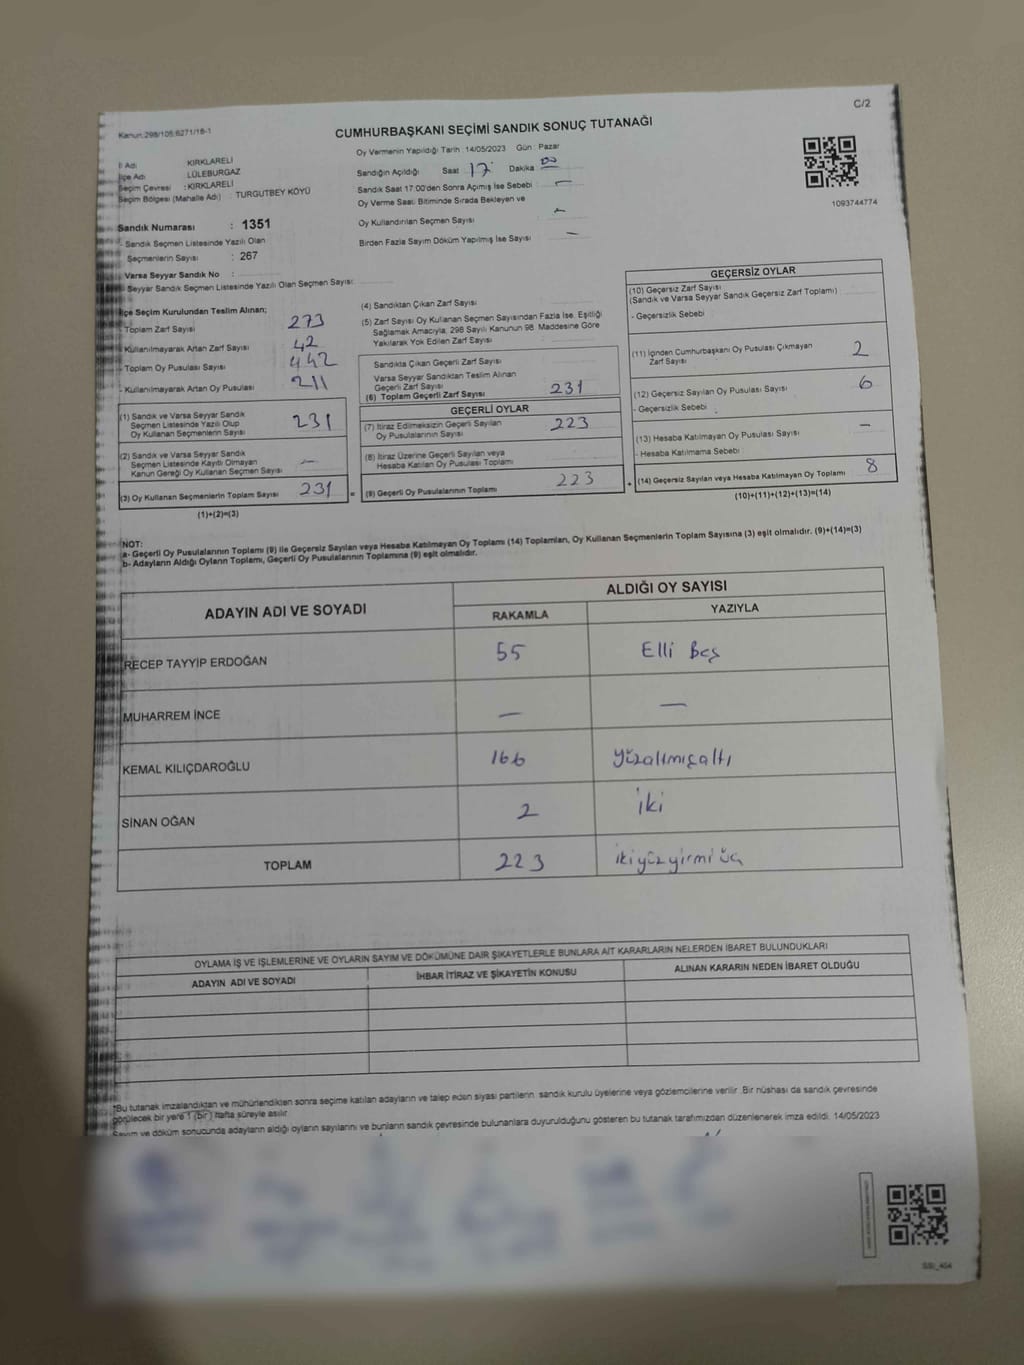 C/2
Kanun:298/105;6271/18-1
CUMHURBAŞKANI SEÇİMİ SANDIK SONUÇ TUTANAĞI
1093744774
İl Adı : KIRKLARELİ
İlçe Adı LÜLEBURGAZ
Seçim Çevresi : KIRKLARELİ
Seçim Bölgesi (Mahalle Adı) : TURGUTBEY KÖYÜ
Oy Vermenin Yapıldığı Tarih : 14/05/2023 Gün : Pazar
Sandığın Açıldığı Saat 17 Dakika 00
Sandık Saat 17:00'den Sonra Açılmış İse Sebebi : —
Oy Verme Saati Bitiminde Sırada Bekleyen ve
Oy Kullandırılan Seçmen Sayısı —
Birden Fazla Sayım Döküm Yapılmış İse Sayısı —
Sandık Numarası : 1351
- Sandık Seçmen Listesinde Yazılı Olan
Seçmenlerin Sayısı : 267
Varsa Seyyar Sandık No :
- Seyyar Sandık Seçmen Listesinde Yazılı Olan Seçmen Sayısı:
İlçe Seçim Kurulundan Teslim Alınan;
- Toplam Zarf Sayısı 273
- Kullanılmayarak Artan Zarf Sayısı 42
- Toplam Oy Pusulası Sayısı 442
- Kullanılmayarak Artan Oy Pusulası 211
(1) Sandık ve Varsa Seyyar Sandık
Seçmen Listesinde Yazılı Olup
Oy Kullanan Seçmenlerin Sayısı 231
(2) Sandık ve Varsa Seyyar Sandık
Seçmen Listesinde Kayıtlı Olmayan
Kanun Gereği Oy Kullanan Seçmen Sayısı —
(3) Oy Kullanan Seçmenlerin Toplam Sayısı 231 =
(1)+(2)=(3)
(4) Sandıktan Çıkan Zarf Sayısı
(5) Zarf Sayısı Oy Kullanan Seçmen Sayısından Fazla İse, Eşitliği
Sağlamak Amacıyla; 298 Sayılı Kanunun 98. Maddesine Göre
Yakılarak Yok Edilen Zarf Sayısı
Sandıkta Çıkan Geçerli Zarf Sayısı
Varsa Seyyar Sandıktan Teslim Alınan
Geçerli Zarf Sayısı
(6) Toplam Geçerli Zarf Sayısı 231
GEÇERLİ OYLAR
(7) İtiraz Edilmeksizin Geçerli Sayılan
Oy Pusulalarının Sayısı 223
(8) İtiraz Üzerine Geçerli Sayılan veya
Hesaba Katılan Oy Pusulası Toplamı
(9) Geçerli Oy Pusulalarının Toplamı 223 +
GEÇERSİZ OYLAR
(10) Geçersiz Zarf Sayısı
(Sandık ve Varsa Seyyar Sandık Geçersiz Zarf Toplamı)
- Geçersizlik Sebebi
(11) İçinden Cumhurbaşkanı Oy Pusulası Çıkmayan
Zarf Sayısı 2
(12) Geçersiz Sayılan Oy Pusulası Sayısı 6
- Geçersizlik Sebebi
(13) Hesaba Katılmayan Oy Pusulası Sayısı —
- Hesaba Katılmama Sebebi
(14) Geçersiz Sayılan veya Hesaba Katılmayan Oy Toplamı 8
(10)+(11)+(12)+(13)=(14)
NOT:
a- Geçerli Oy Pusulalarının Toplamı (9) ile Geçersiz Sayılan veya Hesaba Katılmayan Oy Toplamı (14) Toplamları, Oy Kullanan Seçmenlerin Toplam Sayısına (3) eşit olmalıdır. (9)+(14)=(3)
b- Adayların Aldığı Oyların Toplamı, Geçerli Oy Pusulalarının Toplamına (9) eşit olmalıdır.
ADAYIN ADI VE SOYADI ALDIĞI OY SAYISI
RAKAMLA YAZIYLA
RECEP TAYYİP ERDOĞAN 55 Elli Beş
MUHARREM İNCE — —
KEMAL KILIÇDAROĞLU 166 yüzaltmışaltı
SİNAN OĞAN 2 iki
TOPLAM 223 ikiyüzyirmi üç
OYLAMA İŞ VE İŞLEMLERİNE VE OYLARIN SAYIM VE DÖKÜMÜNE DAİR ŞİKAYETLERLE BUNLARA AİT KARARLARIN NELERDEN İBARET BULUNDUKLARI
ADAYIN ADI VE SOYADI İHBAR İTİRAZ VE ŞİKAYETİN KONUSU ALINAN KARARIN NEDEN İBARET OLDUĞU
*Bu tutanak imzalandıktan ve mühürlendikten sonra seçime katılan adayların ve talep eden siyasi partilerin sandık kurulu üyelerine veya gözlemcilerine verilir. Bir nüshası da sandık çevresinde
görülecek bir yere 1 (bir) hafta süreyle asılır.
Sayım ve döküm sonucunda adayların aldığı oyların sayılarını ve bunların sandık çevresinde bulunanlara duyurulduğunu gösteren bu tutanak tarafımızdan düzenlenerek imza edildi. 14/05/2023